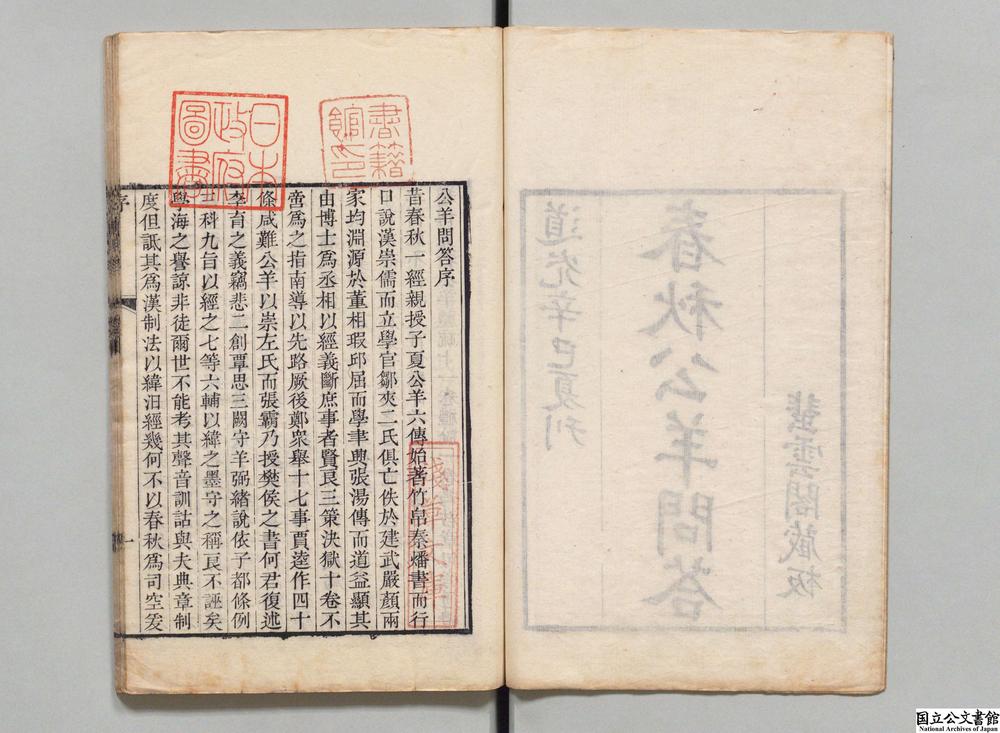 道光辛巳夏刊
春秋公羊問答
蜚雲閣藏板
書籍館印
日本政府圖書
公羊問答序
昔春秋一經親授子夏公羊六傳始著竹帛秦燔書而行
口說漢崇儒而立學官鄒夾二氏俱亡佚於建武嚴顏兩
家均淵源於董相瑕邱屈而學聿興張湯傳而道益顯其
由博士爲丞相以經義斷庶事者賢良三策決獄十卷不
啻爲之指南導以先路厥後鄭衆舉十七事賈逵作四十
條咸難公羊以崇左氏而張霸乃授樊侯之書何君復述
李育之義竊悲二創覃思三闕守羊弼緒說依子都條例
三科九旨以經之七等六輔以緯之墨守之稱良不誣矣
學海之譽諒非徒爾世不能考其聲音訓詁與夫典章制
度但詆其爲漢制法以緯汨經幾何不以春秋爲司空爰
序
一
国立公文書館
National Archives of Japan